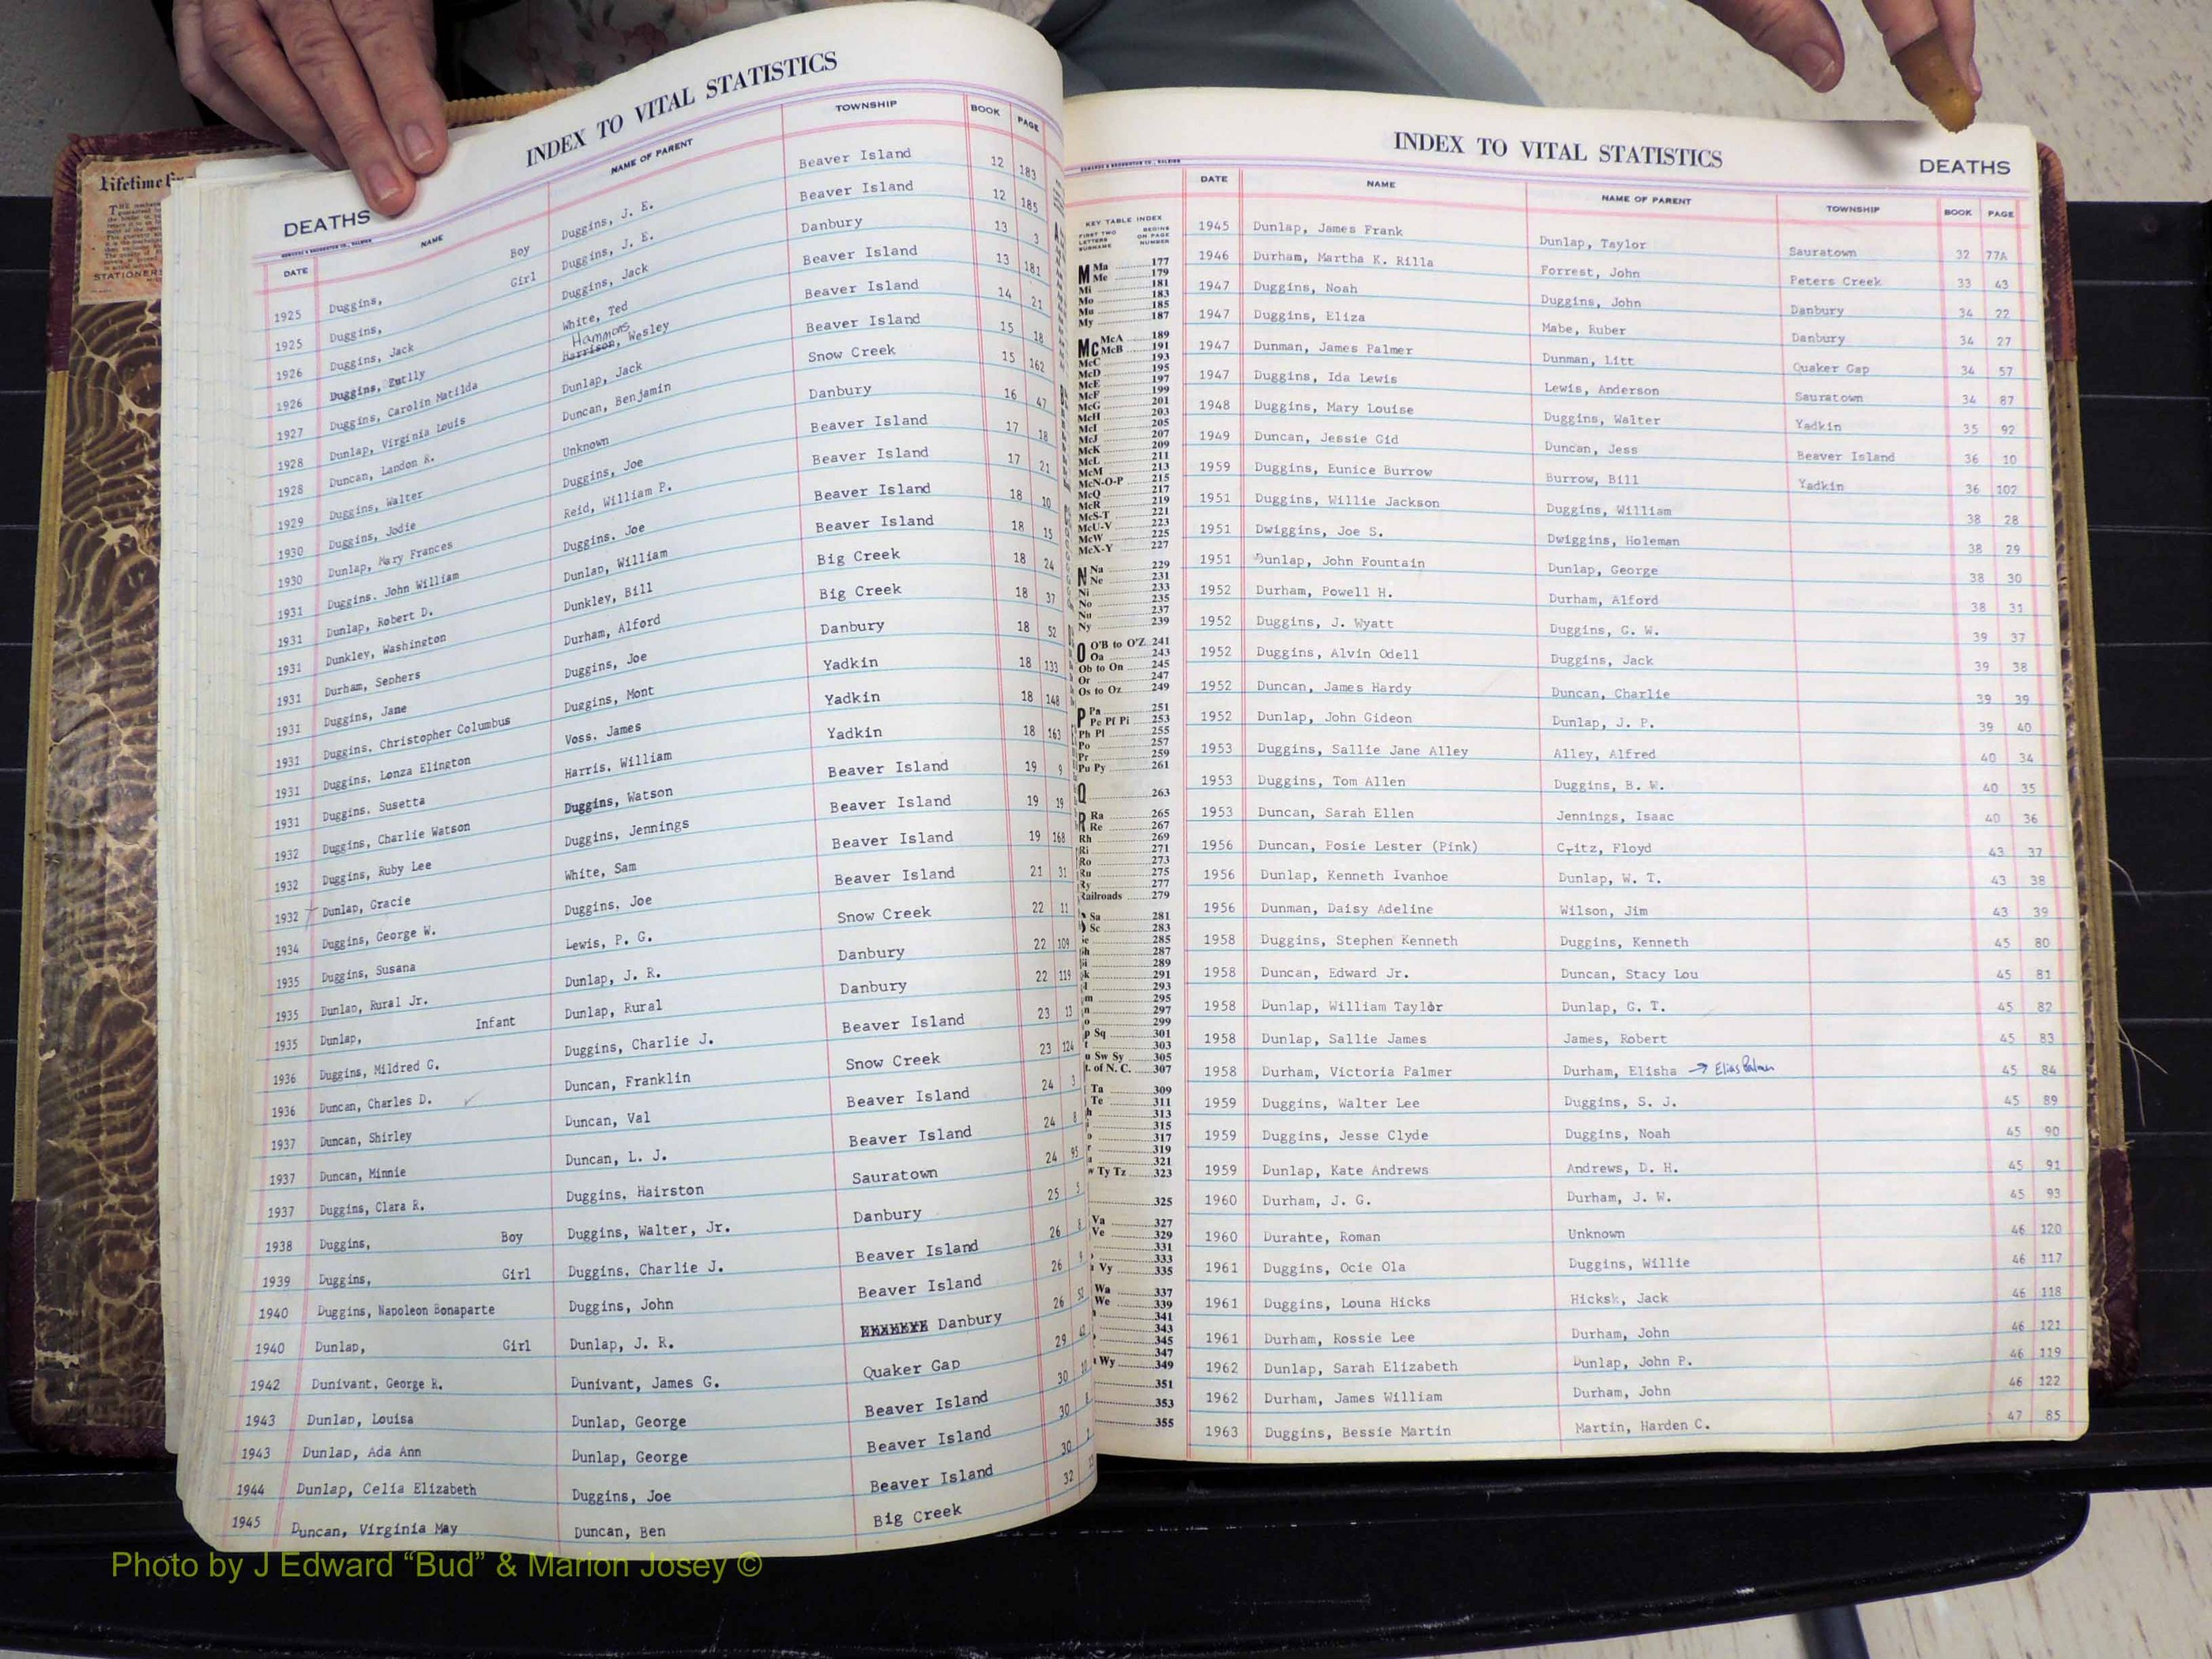 Lifetime
STATIONERS
INDEX TO VITAL STATISTICS
DEATHS
DATE NAME NAME OF PARENT TOWNSHIP BOOK PAGE
1925 Duggins, Boy Duggins, J. E. Beaver Island 12 183
1925 Duggins, Girl Duggins, J. E. Beaver Island 12 185
1926 Duggins, Jack Duggins, Jack Danbury 13 3
1926 Duggins, Eutlly White, Ted Beaver Island 13 181
Hammons
1927 Duggins, Carolin Matilda Harrison, Wesley Beaver Island 14 21
1928 Dunlap, Virginia Louis Dunlap, Jack Beaver Island 15 18
1928 Duncan, Landon R. Duncan, Benjamin Snow Creek 15 162
1929 Duggins, Walter Unknown Danbury 16 47
1930 Duggins, Jodie Duggins, Joe Beaver Island 17 18
1930 Dunlap, Mary Frances Reid, William P. Beaver Island 17 21
1931 Duggins. John William Duggins. Joe Beaver Island 18 10
1931 Dunlap, Robert D. Dunlap, William Beaver Island 18 15
1931 Dunkley, Washington Dunkley, Bill Big Creek 18 24
1931 Durham, Sephers Durham, Alford Big Creek 18 37
1931 Duggins, Jane Duggins, Joe Danbury 18 52
1931 Duggins. Christopher Columbus Duggins, Mont Yadkin 18 133
1931 Duggins. Lonza Elington Voss. James Yadkin 18 148
1931 Duggins. Susetta Harris. William Yadkin 18 163
1932 Duggins, Charlie Watson Duggins, Watson Beaver Island 19 9
1932 Duggins, Ruby Lee Duggins, Jennings Beaver Island 19 19
1932 Dunlap, Gracie White, Sam Beaver Island 19 168
1934 Duggins, George W. Duggins. Joe Beaver Island 21 31
1935 Duggins, Susana Lewis, P. G. Snow Creek 22 11
1935 Dunlap, Rural Jr. Dunlap, J. R. Danbury 22 109
1935 Dunlap, Infant Dunlap, Rural Danbury 22 119
1936 Duggins, Mildred G. Duggins, Charlie J. Beaver Island 23 13
1936 Duncan, Charles D. Duncan, Franklin Snow Creek 23 124
1937 Duncan, Shirley Duncan, Val Beaver Island 24 3
1937 Duncan, Minnie Duncan, L. J. Beaver Island 24 8
1937 Duggins, Clara R. Duggins. Hairston Sauratown 24 95
1938 Duggins, Boy Duggins, Walter, Jr. Danbury 25
1939 Duggins, Girl Duggins. Charlie J. Beaver Island 26
1940 Duggins, Napoleon Bonaparte Duggins, John Beaver Island 26
1940 Dunlap, Girl Dunlap, J. R. Danbury 26
1942 Dunivant. George R. Dunivant, James G. Quaker Gap 29
1943 Dunlap, Louisa Dunlap, George Beaver Island 30
1943 Dunlap, Ada Ann Dunlap, George Beaver Island 30
1944 Dunlap, Celia Elizabeth Duggins, Joe Beaver Island 30
1945 Duncan, Virginia May Duncan, Ben Big Creek 32
KEY TABLE INDEX
FIRST TWO LETTERS SURNAME BEGINS ON PAGE NUMBER
M Ma 177
Me 179
Mi 181
Mo 183
Mu 185
My 187
Mc McA 189
McB 191
McC 193
McD 195
McE 197
McF 199
McG 201
McH 203
McI 205
McJ 207
McK 209
McL 211
McM 213
McN-O-P 215
McQ 217
McR 219
McS-T 221
McU-V 223
McW 225
McX-Y 227
N Na 229
Ne 231
Ni 233
No 235
Nu 237
Ny 239
O O'B to O'Z 241
Oa 243
Ob to On 245
Or 247
Os to Oz 249
P Pa 251
Pe Pf Pi 253
Ph Pl 255
Po 257
Pr 259
Pu Py 261
Q 263
R Ra 265
Re 267
Rh 269
Ri 271
Ro 273
Ru 275
Ry 277
Railroads 279
Sa 281
Sc 283
285
287
289
291
293
295
297
299
Sq 301
303
Sw Sy 305
of N. C. 307
Ta 309
Te 311
313
315
317
319
321
Ty Tz 323
325
Va 327
Ve 329
331
333
Vy 335
Wa 337
We 339
341
343
345
347
Wy 349
351
353
355
INDEX TO VITAL STATISTICS
DEATHS
DATE NAME NAME OF PARENT TOWNSHIP BOOK PAGE
1945 Dunlap, James Frank Dunlap, Taylor Sauratown 32 77A
1946 Durham, Martha K. Rilla Forrest, John Peters Creek 33 43
1947 Duggins, Noah Duggins, John Danbury 34 22
1947 Duggins, Eliza Mabe, Ruber Danbury 34 27
1947 Dunman, James Palmer Dunman, Litt Quaker Gap 34 57
1947 Duggins, Ida Lewis Lewis, Anderson Sauratown 34 87
1948 Duggins, Mary Louise Duggins, Walter Yadkin 35 92
1949 Duncan, Jessie Gid Duncan, Jess Beaver Island 36 10
1959 Duggins, Eunice Burrow Burrow, Bill Yadkin 36 102
1951 Duggins, Willie Jackson Duggins, William 38 28
1951 Dwiggins, Joe S. Dwiggins, Holeman 38 29
1951 Dunlap, John Fountain Dunlap, George 38 30
1952 Durham, Powell H. Durham, Alford 38 31
1952 Duggins, J. Wyatt Duggins, G. W. 39 37
1952 Duggins, Alvin Odell Duggins, Jack 39 38
1952 Duncan, James Hardy Duncan, Charlie 39 39
1952 Dunlap, John Gideon Dunlap, J. P. 39 40
1953 Duggins, Sallie Jane Alley Alley, Alfred 40 34
1953 Duggins, Tom Allen Duggins, B. W. 40 35
1953 Duncan, Sarah Ellen Jennings, Isaac 40 36
1956 Duncan, Posie Lester (Pink) Critz, Floyd 43 37
1956 Dunlap, Kenneth Ivanhoe Dunlap, W. T. 43 38
1956 Dunman, Daisy Adeline Wilson, Jim 43 39
1958 Duggins, Stephen Kenneth Duggins, Kenneth 45 80
1958 Duncan, Edward Jr. Duncan, Stacy Lou 45 81
1958 Dunlap, William Taylor Dunlap, G. T. 45 82
1958 Dunlap, Sallie James James, Robert 45 83
1958 Durham, Victoria Palmer Durham, Elisha → Elias Palmer 45 84
1959 Duggins, Walter Lee Duggins, S. J. 45 89
1959 Duggins, Jesse Clyde Duggins, Noah 45 90
1959 Dunlap, Kate Andrews Andrews, D. H. 45 91
1960 Durham, J. G. Durham, J. W. 45 93
1960 Durahte, Roman Unknown 46 120
1961 Duggins, Ocie Ola Duggins, Willie 46 117
1961 Duggins, Louna Hicks Hicksk, Jack 46 118
1961 Durham, Rossie Lee Durham, John 46 121
1962 Dunlap, Sarah Elizabeth Dunlap, John P. 46 119
1962 Durham, James William Durham, John 46 122
1963 Duggins, Bessie Martin Martin, Harden C. 47 85
Photo by J Edward “Bud” & Marion Josey ©